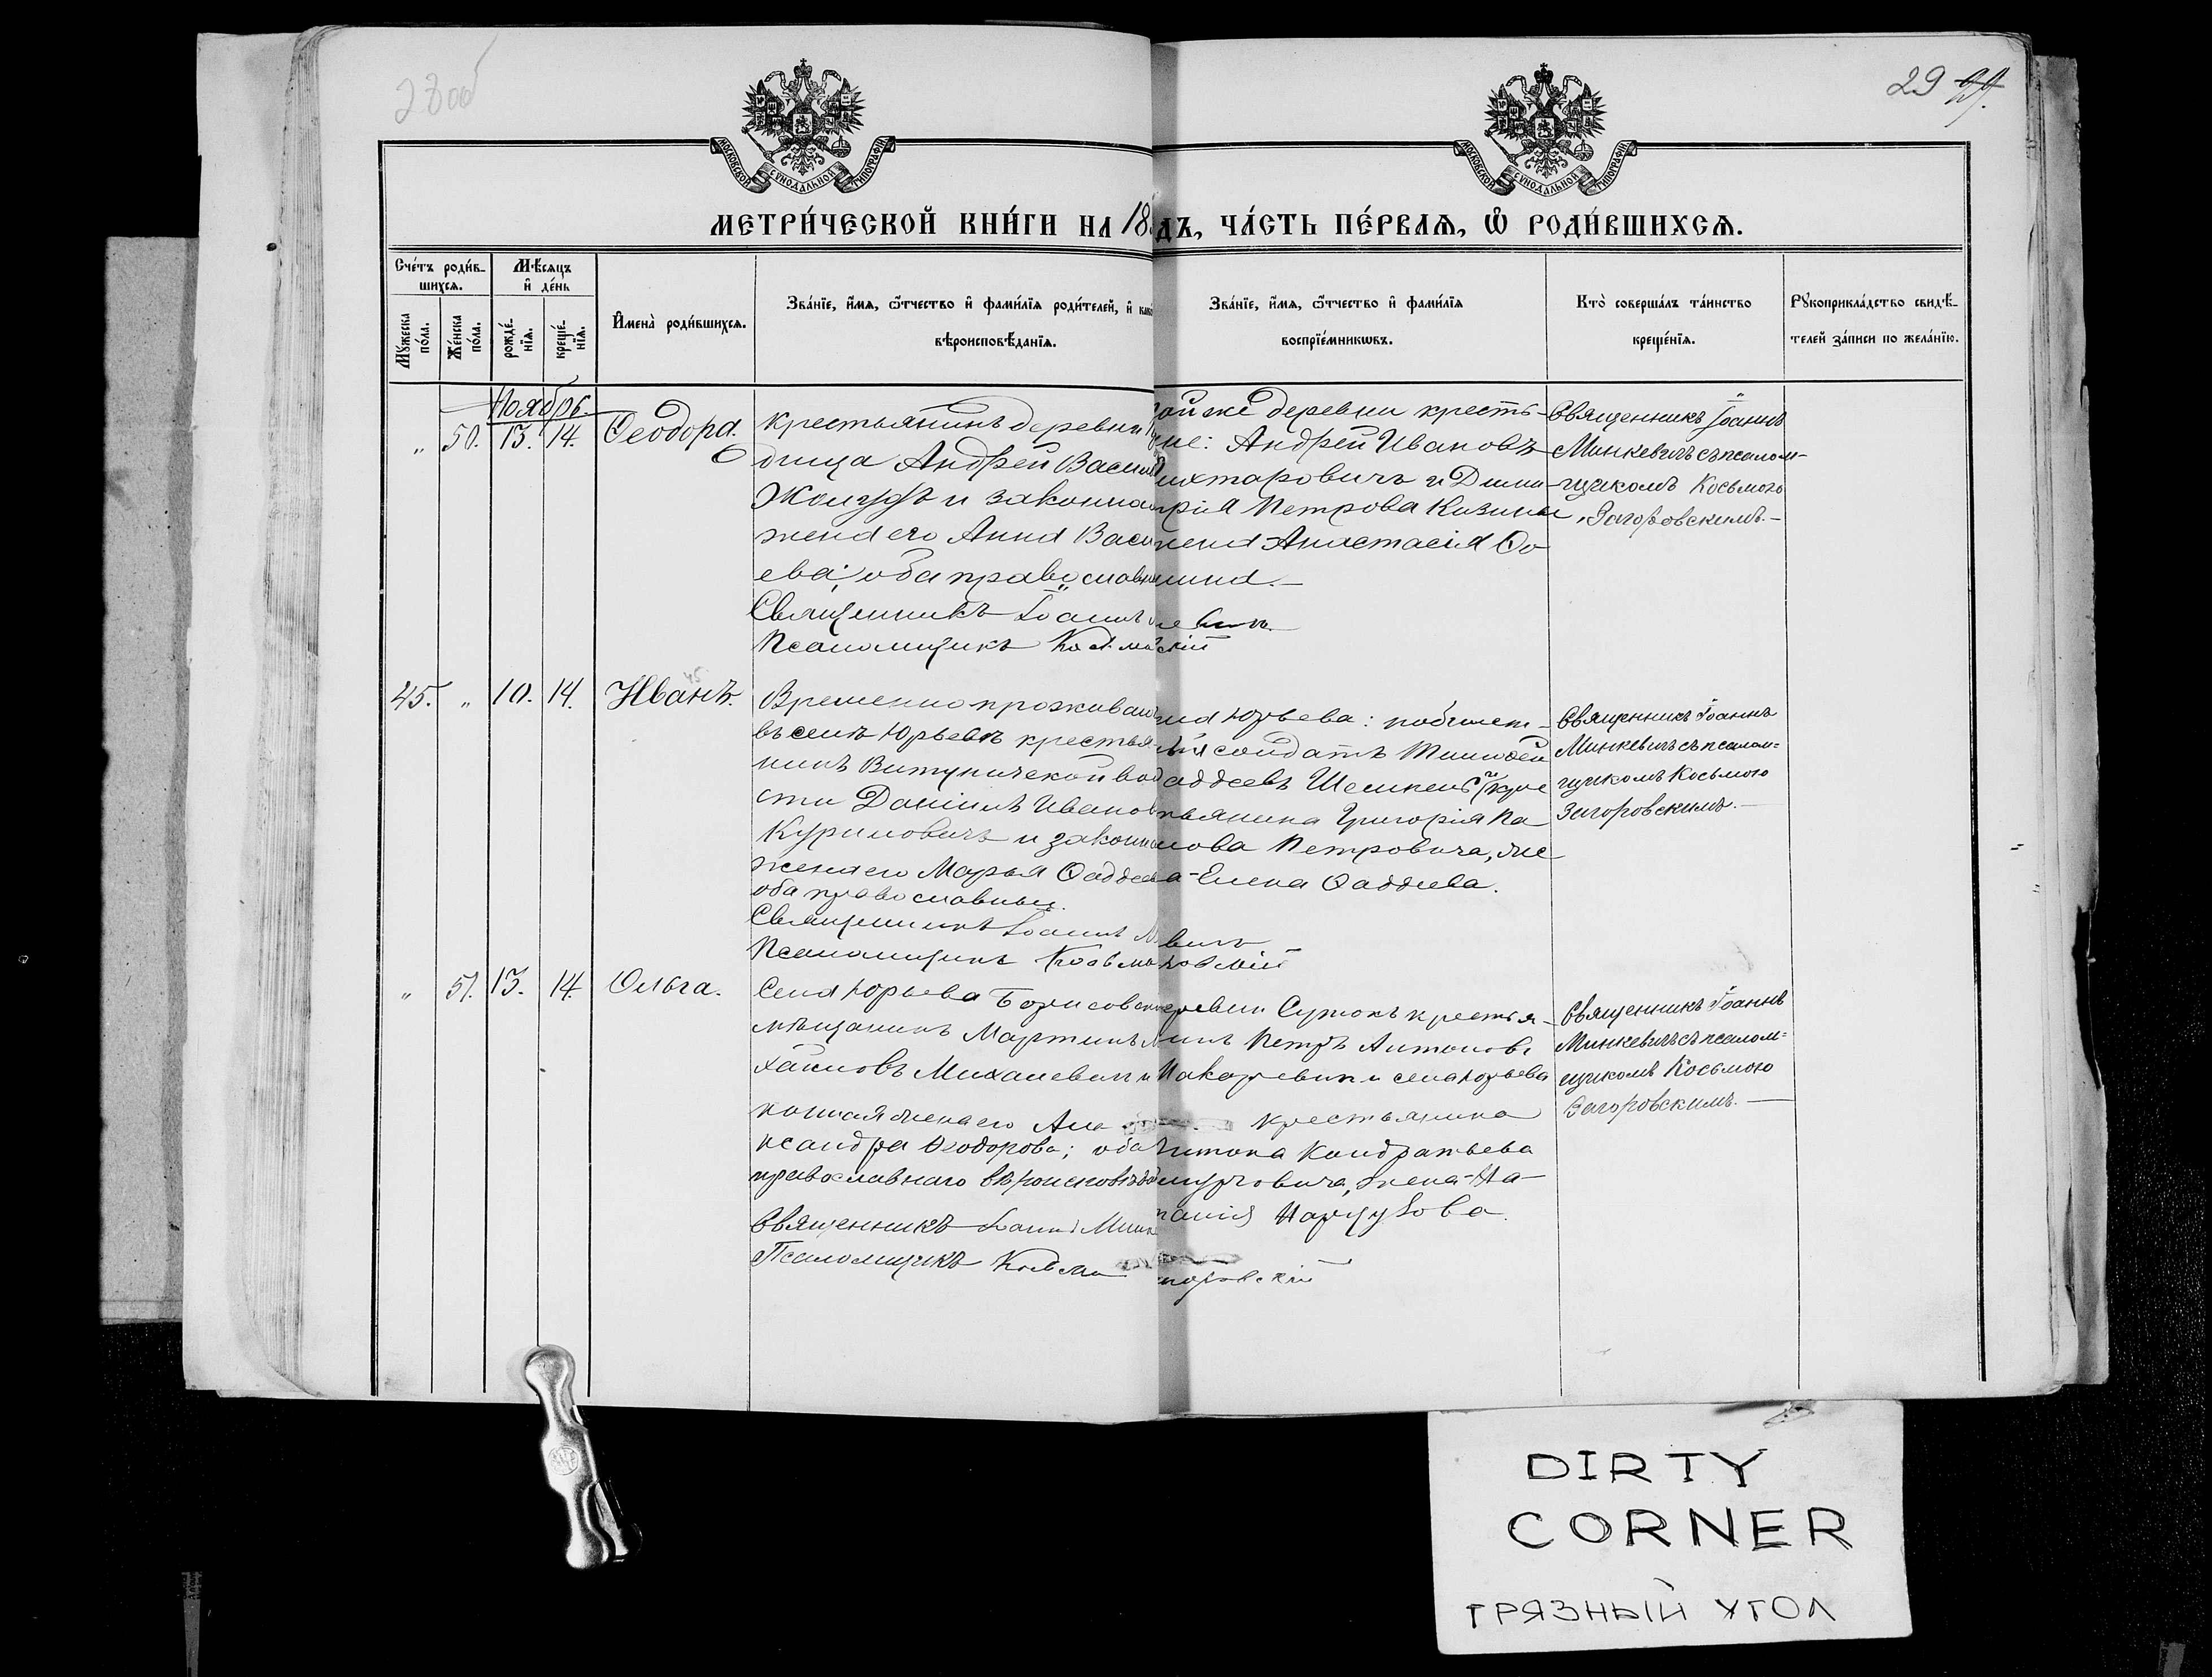 28об
29
МОСКОВСКОЙ СУНОДАЛЬНОЙ ТИПОГРАФІИ
МОСКОВСКОЙ СУНОДАЛЬНОЙ ТИПОГРАФІИ
МЕТРИ́ЧЕСКОЙ КНИ́ГИ НА 18
дъ, ЧА́СТЬ ПЕ́РВАѦ, Ѿ РОДИ́ВШИХСѦ.
Сче́тъ роди́в-
шихсѧ.
Мѣ́сяцъ
и҆ де́нь
Мꙋ́жеска
по́ла.
Же́нска
по́ла.
рожде́-
нїѧ.
креще́-
нїѧ.
И҆мена̀ роди́вшихсѧ.
Зва́нїе, и҆́мѧ, ѻ҆́тчество и҆ фами́лїѧ роди́телей, и҆
вѣроисповѣ́данїѧ.
Зва́нїе, и҆́мѧ, ѻ҆́тчество и҆ фами́лїѧ
воспрїе́мникωвъ.
Кто̀ соверша́лъ та́инство
креще́нїѧ.
Рꙋкоприкла́дство свидѣ́-
телей за́писи по жела́нїю.
Ноябрь.
" 50. 13. 14. Ѳеодора.
крестьянинъ деревни
дища Андрей Васил
Жолудь и законна
жена его Анна Васи
ева, оба православн
Священникъ Іоаннъ
Псаломщикъ Косьма
ойже деревни кресть-
не: Андрей Ивановъ
ихтаровичъ и Дими-
рія Петрова Кизины
жена Анастасія Ѳо
мина.
вичъ
скій
Священникъ Іоаннъ
Минкевичъ съ псалом-
щикомъ Косьмою
Загоровскимъ.
45. " 10. 14. Иванъ. 45
Временно прожива
въ селѣ Юрьевѣ крестья
нинъ Витуничской вол
сти Даніилъ Иванов
Куриловичъ и законна
жена его Марья Ѳаддеев
оба православные.
Священникъ Іоаннъ М
Псаломщикъ Косьма
ела Юрьева:
солдатъ Тимоѳей
аддеевъ
тьянина Григорія Па
лова Петровича, же
а Елена Ѳаддеева.
вичъ
ровскій
Священникъ Іоаннъ
Минкевичъ съ псалом=
щикомъ Косьмою
Загоровскимъ.
" 51. 13. 14. Ольга.
Села Юрьева Борисовск
мѣщанинъ Мартинъ М
хаиловъ Михалевичъ и
конная жена его Але
ксандра Ѳеодорова; оба
православнаго вѣроисповѣд
Священникъ Іоаннъ Минк
Псаломщикъ Косьма
еревни Сутокъ крестья-
нинъ Петръ Антоновъ
Макаревичъ и села Юрьева
крестьянина
Антона Кондратьева
жена-На
талія
горовскій
Священникъ Іоаннъ
Минкевичъ съ псалом=
щикомъ Косьмою
Загоровскимъ.
DIRTY
CORNER
ГРЯЗНЫЙ УГОЛ